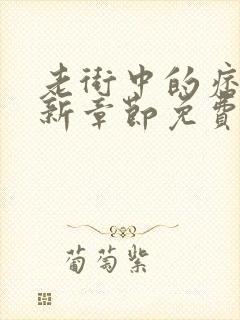 老街中的痞
新章节免費
葡萄紫